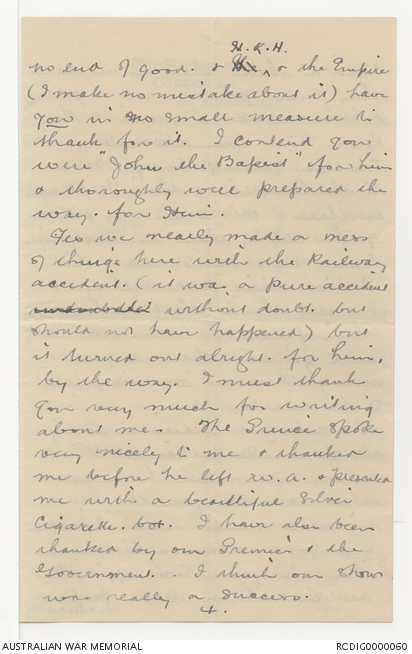 H.R.H.
no end of good. & He, & the Empire
(I make no mistake about it) have
you in no small measure to
thank for it. I contend you
were "John the Baptist" for him
& thoroughly well prepared the
way. for Him.
Yes we nearly made a mess
of things here with the Railway
accident. (it was a pure accident
undoubtedly without doubt. but
should not have happened) but
it turned out alright. for him,
by the way. I must thank
you very much for writing
about me. The Prince spoke
very nicely to me & thanked
me before he left W.A. & presented
me with a beautiful silver
Cigarette. box. I have also been
thanked by our Premier & the
Government. I think our show
was really a success.
4.
AUSTRALIAN WAR MEMORIAL
RCDIG0000060